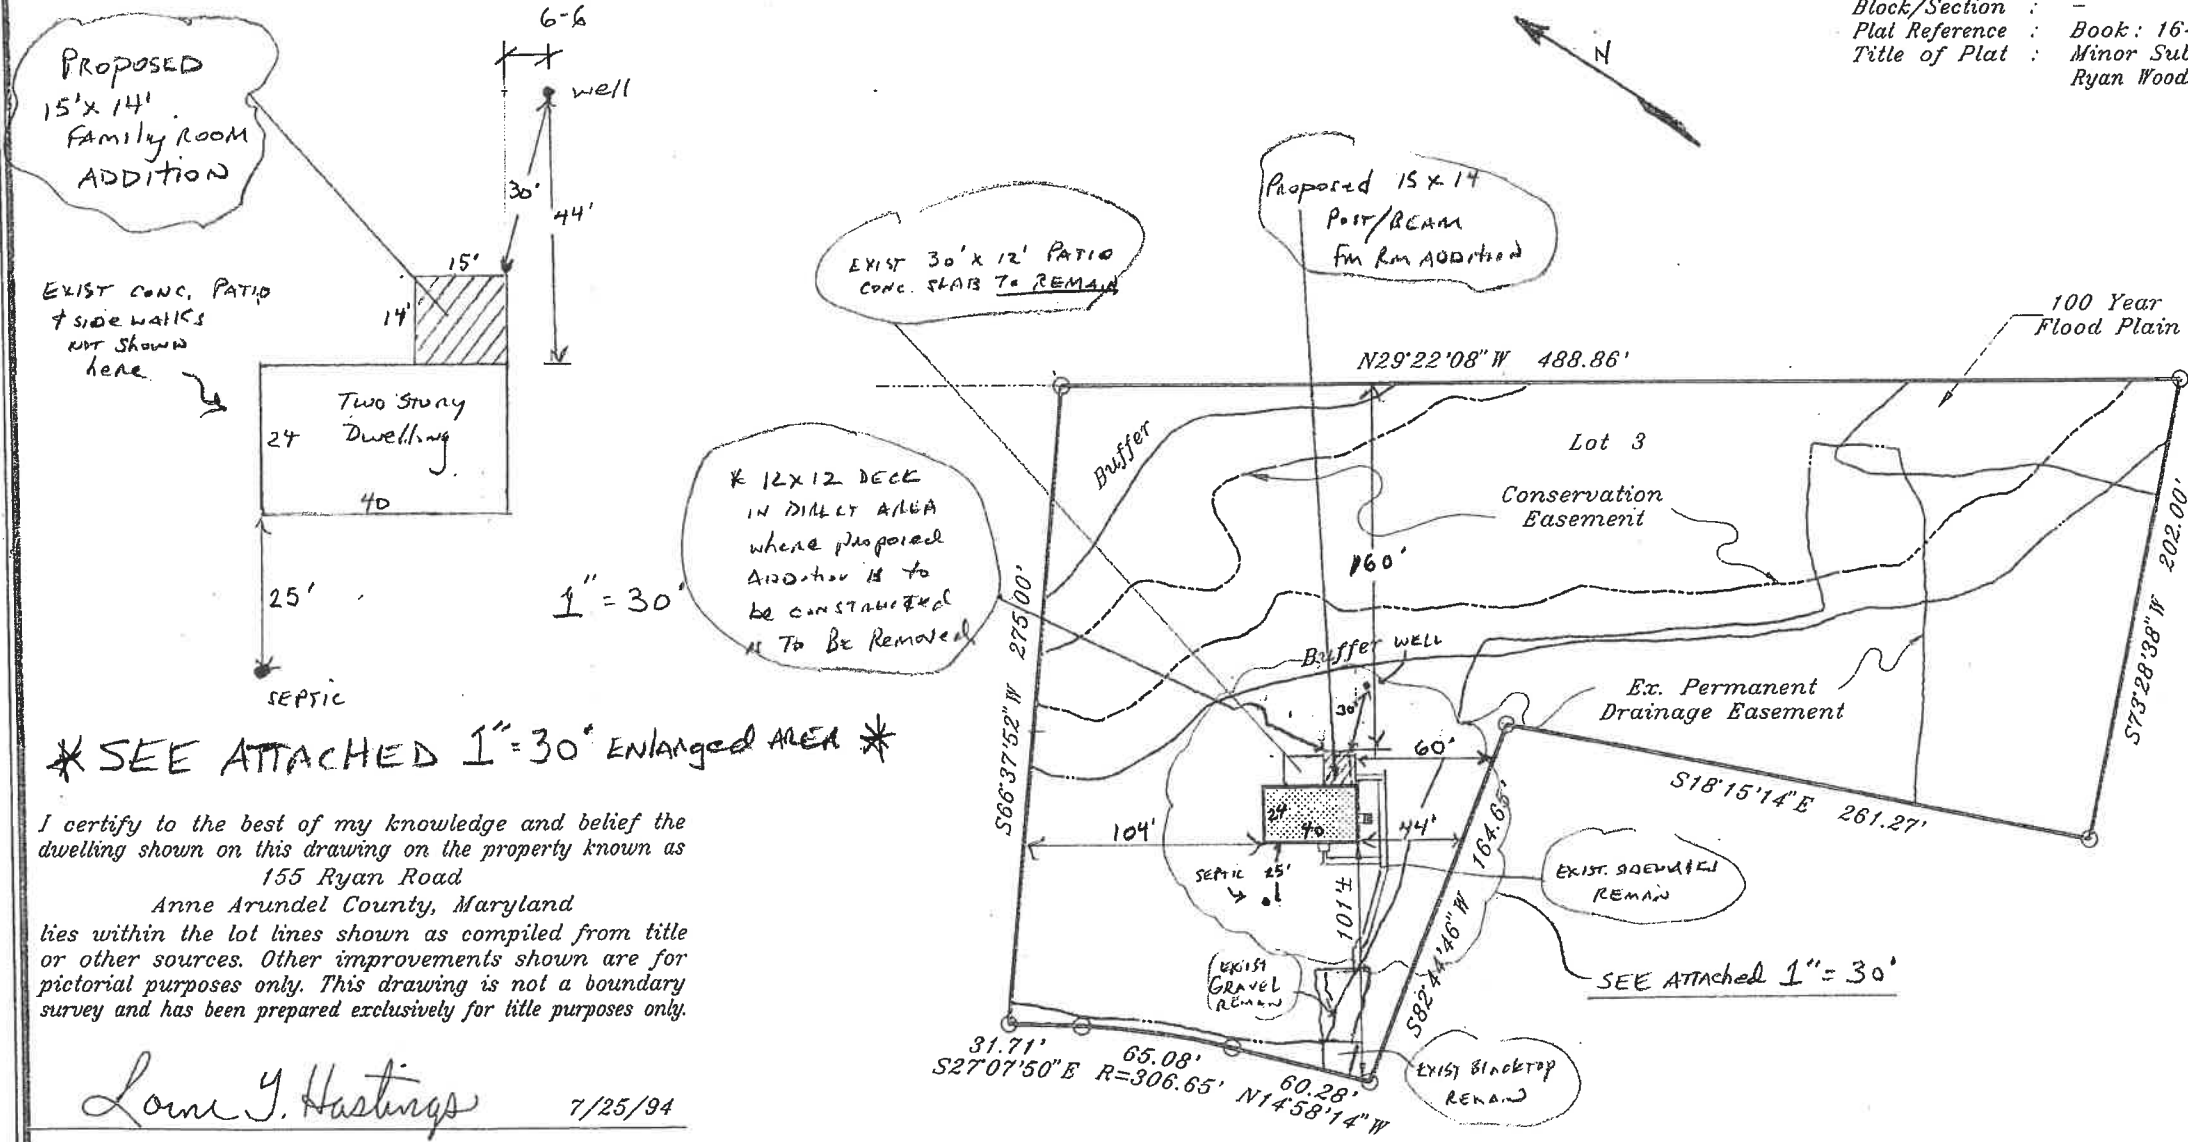 Block/Section : -
Plat Reference : Book: 16
Title of Plat : Minor Sub
Ryan Wood
N
6-6
well
30'
44'
PROPOSED
15' x 14'
FAMILY ROOM
ADDITION
15'
14'
EXIST CONC. PATIO
& SIDEWALKS
NOT SHOWN
here
Two Story
Dwelling
24
40
25'
SEPTIC
1" = 30'
* SEE ATTACHED 1" = 30' ENLARGED AREA *
I certify to the best of my knowledge and belief the
dwelling shown on this drawing on the property known as
155 Ryan Road
Anne Arundel County, Maryland
lies within the lot lines shown as compiled from title
or other sources. Other improvements shown are for
pictorial purposes only. This drawing is not a boundary
survey and has been prepared exclusively for title purposes only.
7/25/94
EXIST 30' x 12' PATIO
CONC. SLAB TO REMAIN
Proposed 15 x 14
POST/BEAM
FM RM ADDITION
* 12x12 DECK
IN DIRECT AREA
where proposed
Addition is to
be constructed
is To Be Removed
100 Year
Flood Plain
N29°22'08"W 488.86'
Buffer
Lot 3
Conservation
Easement
160'
Buffer
WELL
Ex. Permanent
Drainage Easement
S73°28'38"W 202.00'
S66°37'52"W 275.00'
S18°15'14"E 261.27'
30'
60'
104'
24
40
44'
SEPTIC
25'
101'±
S82°44'46"W 164.65'
EXIST. SIDEWALKS
REMAIN
SEE ATTACHED 1" = 30'
EXIST
GRAVEL
REMAIN
EXIST BLACKTOP
REMAIN
31.71'
S27°07'50"E
65.08'
R=306.65'
60.28'
N14°58'14"W